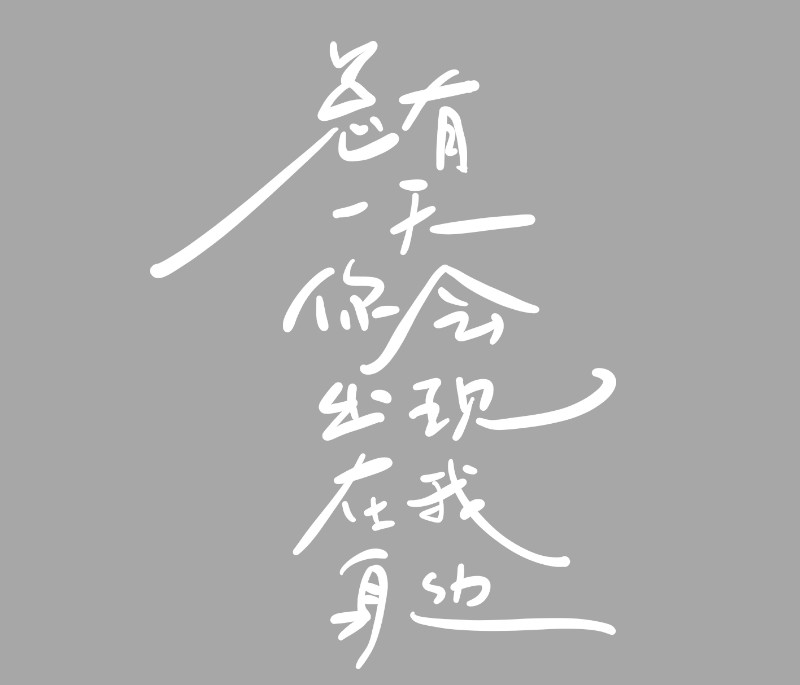 总有
一天
你会
出现
在我
身边